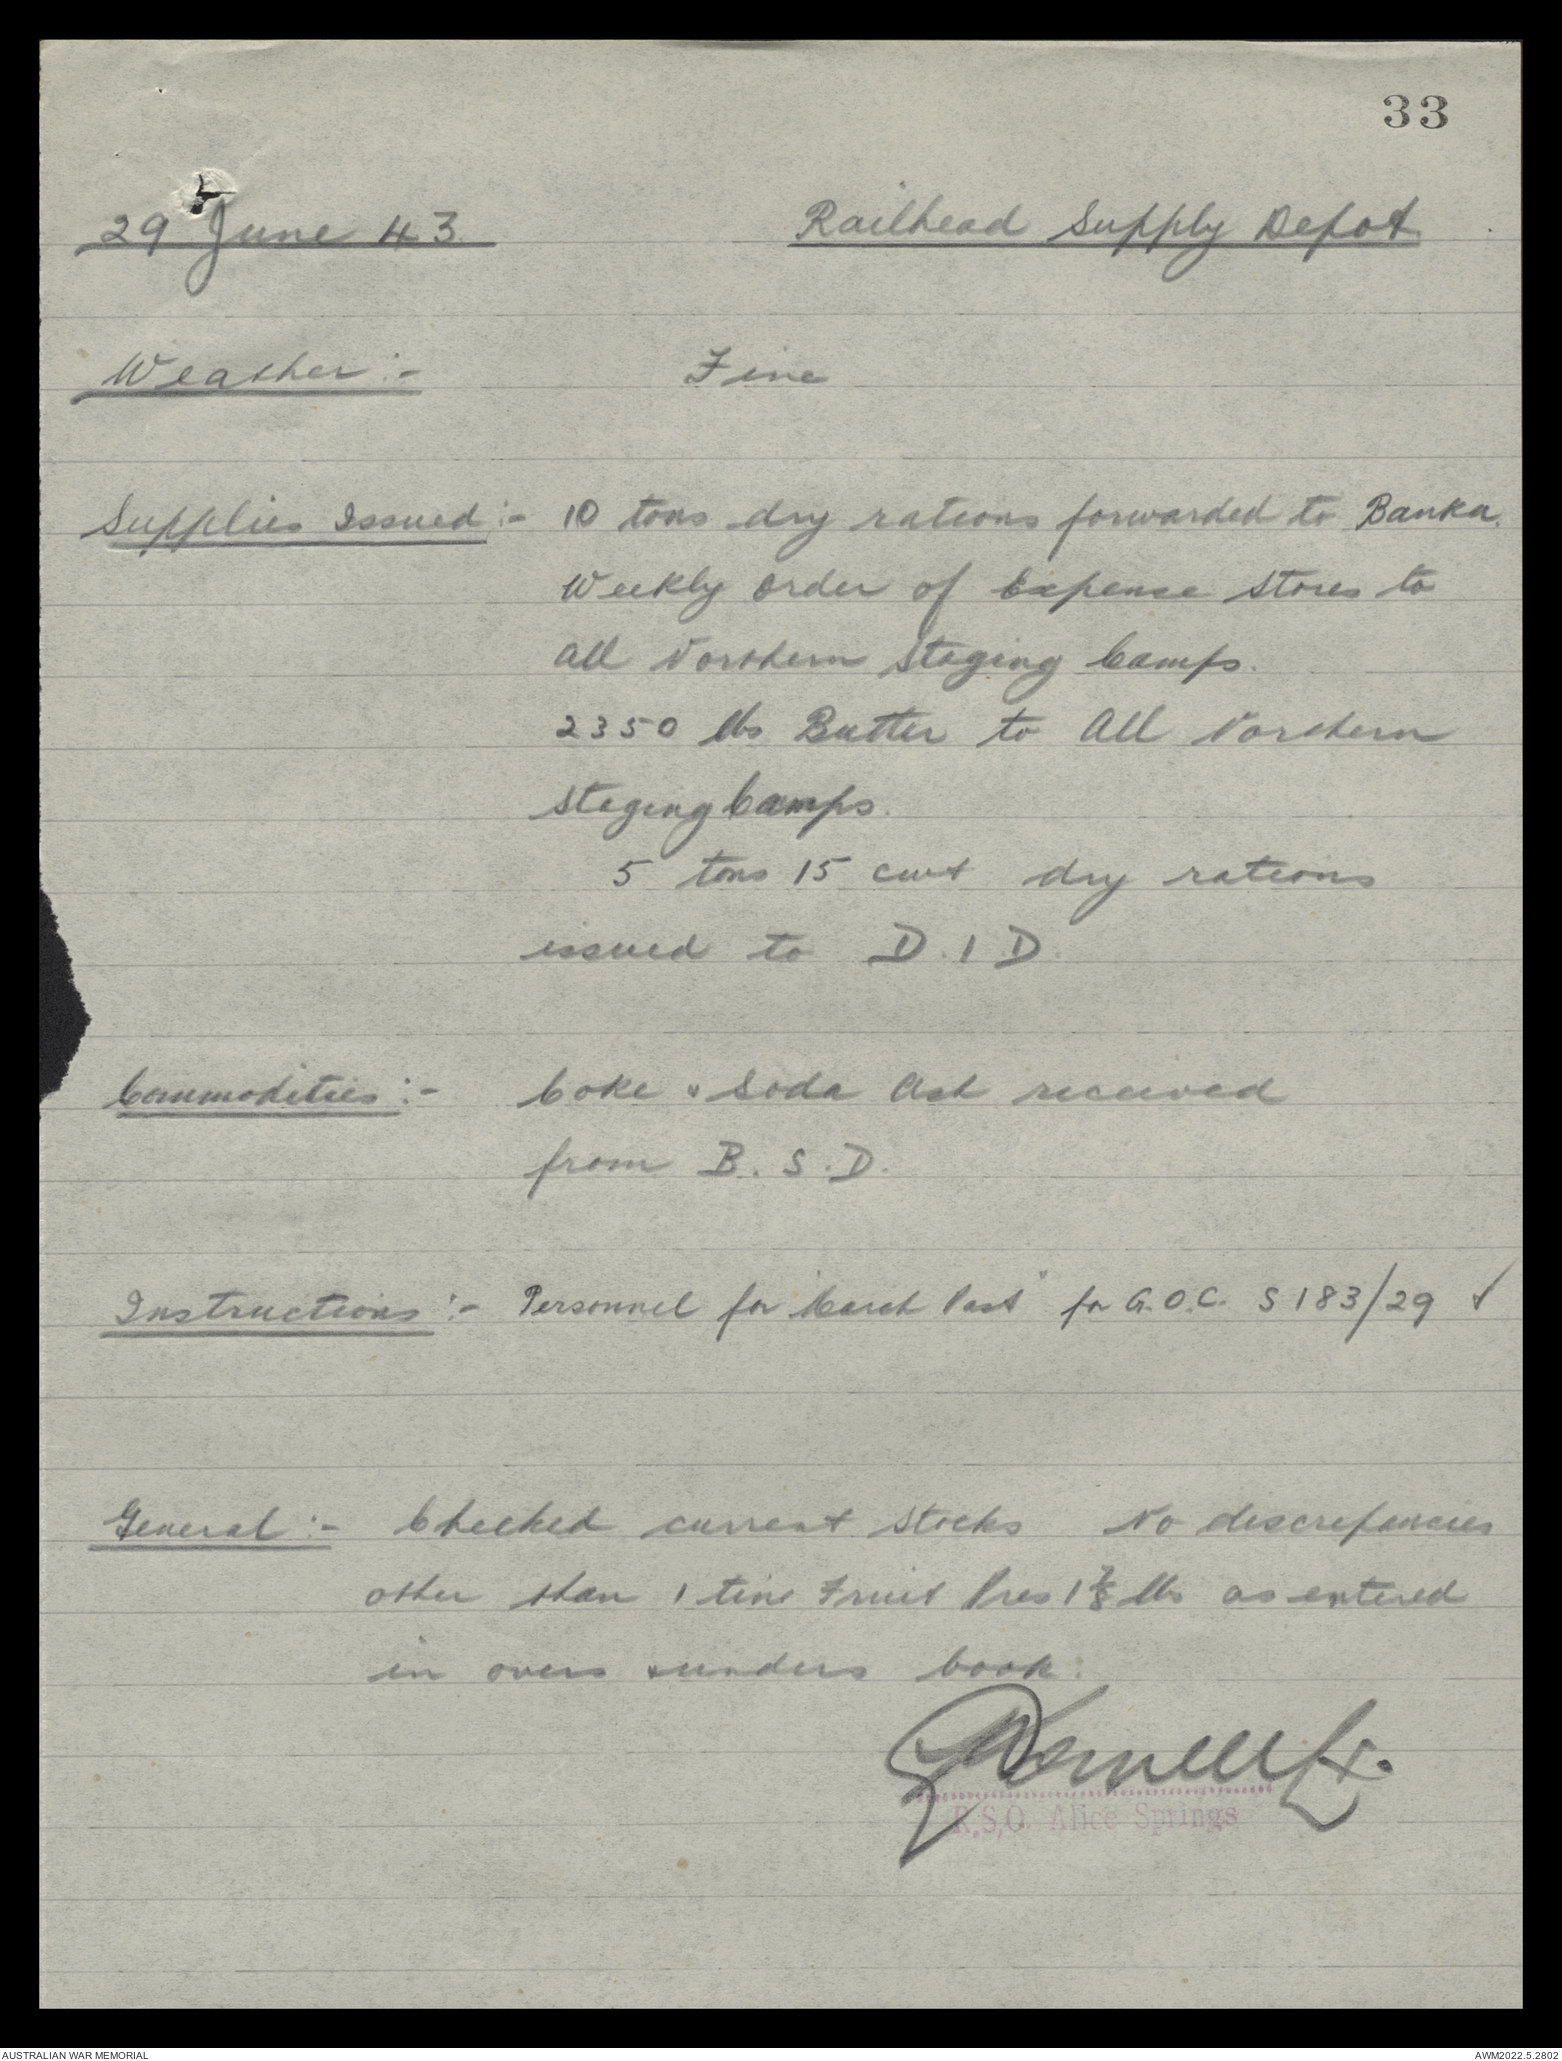 33
29 June 43. Railhead Supply Depot
Weather :- Fine
Supplies Issued :- 10 tons dry rations forwarded to Banka.
Weekly order of Expense Stores to
all Northern Staging Camps.
2350 lbs Butter to all Northern
Staging Camps.
5 tons 15 cwt dry rations
issued to D.I.D.
Commodities :- Coke & Soda Ash received
from B.S.D.
Instructions :- Personnel for "March Past" for G.O.C. S183/29 ✓
General :- Checked current stocks No discrepancies
other than 1 tine Fruit Pres 1 7/8 lbs as entered
in overs & unders book.
R.S.O. Alice Springs
AUSTRALIAN WAR MEMORIAL AWM2022.5.2802